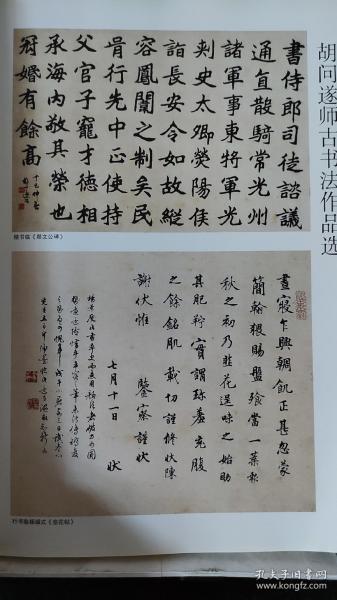 胡问遂师古书法作品选
書侍郎司徒諮議
通直散騎常光州
諸軍事東將軍光
刾史太卿熒陽侯
詣長安令如故縱
容鳳闈之制矣民
肯行先中正使持
父官子寵才徳相
承海内敬其榮也
冠婚有餘髙
楷书临《郑文公碑》
晝寢乍興輖飢正甚忽蒙
簡翰猥賜盤飧當一葉報
秋之初乃韭花逞味之始助
其肥羜實謂珍羞充腹
之餘銘肌載切謹修狀陳
謝伏惟 鑒察謹狀
七月十一日 狀
行书临杨凝式《韭花帖》
孔夫子旧书网